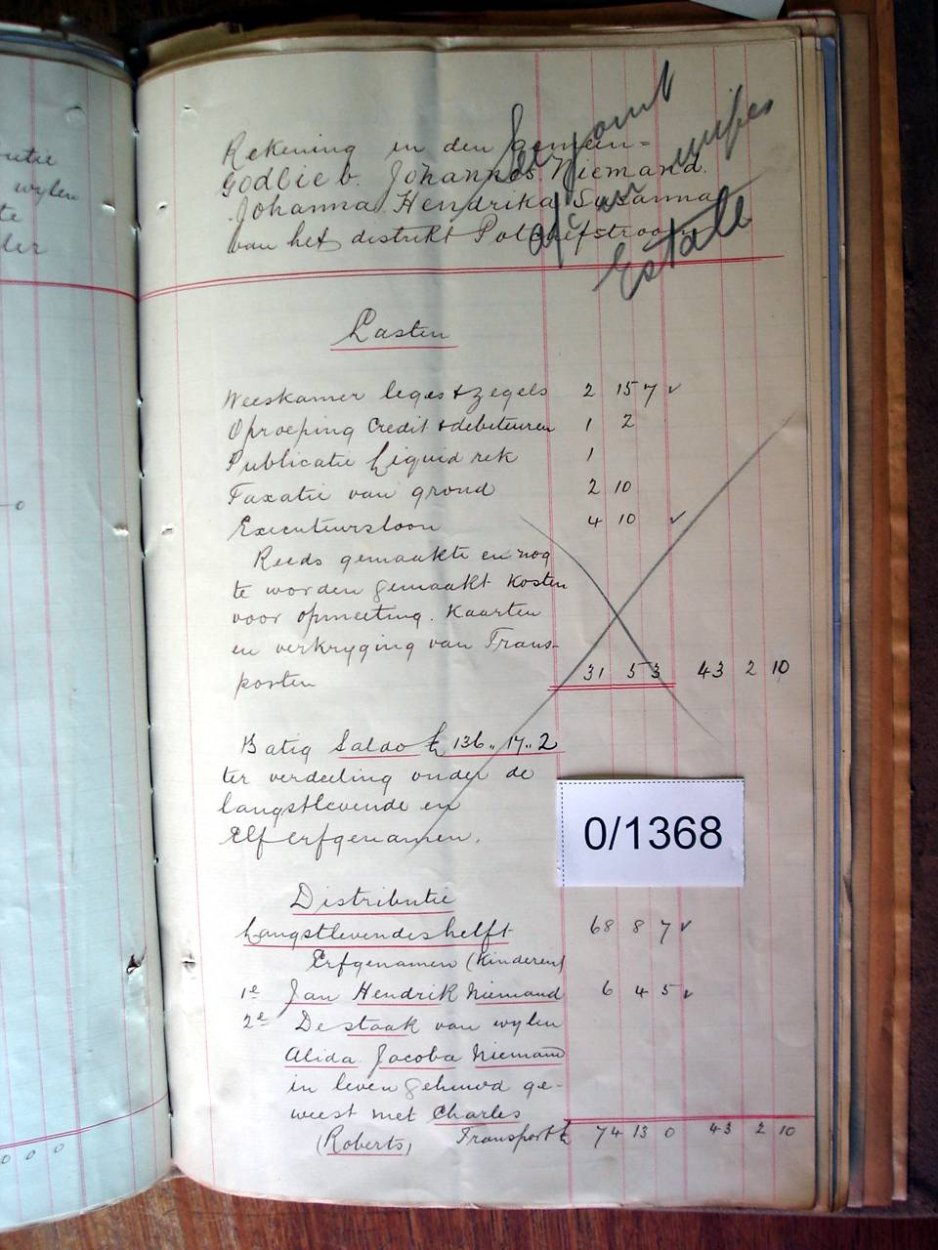 utie
wylen
te
der
Rekening in den gemeen-
Godlieb Johannes Niemand
Johanna Hendrika Susanna
van het distrikt Potchefstroom
account
of wifes
Estate
Lasten
Weeskamer leges & zegels 2 15 7 ✓
Oproeping Credit & debiteuren 1 2
Publicatie Liquid rek 1
Taxatie van grond 2 10
Executeursloon 4 10 ✓
Reeds gemaakte en nog
te worden gemaakt Kosten
voor opmeeting. Kaarten
en verkryging van Trans-
porten 31 5 3 43 2 10
Batig Saldo £ 136.. 17.. 2
ter verdeeling onder de
langstlevende en
Elf erfgenamen.
0/1368
Distributie
Langstlevendeshelft 68 8 7 ✓
Erfgenamen (Kinderen)
1e Jan Hendrik Niemand 6 4 5 ✓
2e De staak van wylen
Alida Jacoba Niemand
in leven gehuwd ge-
weest met Charles
(Roberts) Transport £ 74 13 0 43 2 10
0 0 0